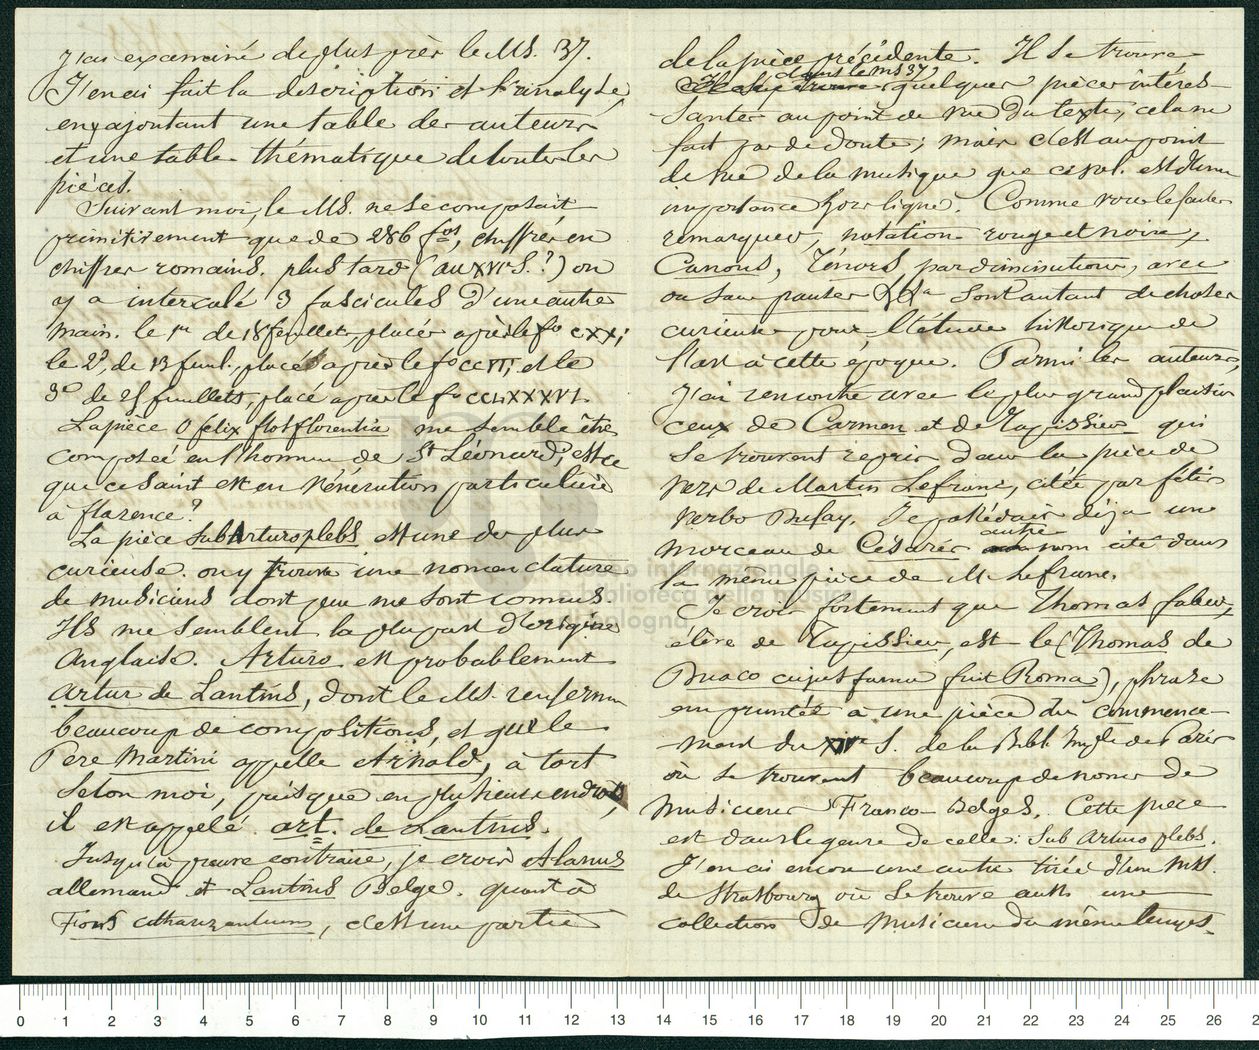 J'ai examiné de plus près le MS. 37.
J'en ai fait la description et l'analyse,
en y ajoutant une table des auteurs
et une table thématique de toutes les
pièces.
Suivant moi, le MS. ne se composait
primitivement que de 286 fos, chiffrés en
chiffres romains. plus tard (au XVIe S. ?) on
y a intercalé 3 fascicules d'une autre
main. le 1er de 18 feuillets, placés après le fo CXXI;
le 2d, de 13 feuil. placés après le fo CCVII, et le
3e de 25 feuillets, placé après le fo CCLXXXVI.
La pièce O felix flos florentia me semble être
composée en l'honneur de St Léonard; est-ce
que ce Saint est en vénération particulière
à florence ?
La pièce Sub Arturo plebs est une des plus
curieuse. on y trouve une nomenclature
de musiciens dont peu me sont connus.
Ils me semblent la plupart d'origine
Anglaise. Arturo est probablement
Artur de Lantins, dont le MS. renferme
beaucoup de compositions, et que le
Pere Martini appelle Arnald, à tort
selon moi, puisque en plusieurs endroits,
il est appelé art. de Lantins.
Jusqu'à preuve contraire, je crois Alanus
allemand et Lantins Belge. quant à
Fons citharizantium, c'est une partie
de la pièce précédente. Il se trouve
dans le MS 37,
quelques pièces intéres-
santes au point de vue du texte, cela ne
fait pas de doute; mais c'est au point
de vue de la musique que ce vol. est d'une
importance hors ligne. Comme vous le faites
remarquer, notation rouge et noire,
Canons, Ténors par diminution, avec
ou sans pauses &&a sont autant de choses
curieuses pour l'étude historique de
l'art à cette époque. Parmi les auteurs,
j'ai rencontré avec le plus grand plaisir
ceux de Carmen et de Tapissier qui
se trouvent repris dans la pièce de
vers de Martin Lefranc, citée par fétis
verbo Dufay. Je possédais déja un
morceau de Césaris autre nom cité dans
la même pièce de M. Lefranc.
Je crois fortement que Thomas faber,
élève de Tapissier, est le (Thomas de
Duaco cujus fama fuit Roma), phrase
empruntée à une pièce du commence-
ment du XIVe S. de la Bibl. Imple de Paris
où se trouvent beaucoup de noms de
musiciens Franco-Belges. Cette pièce
est dans le genre de celle : Sub Arturo plebs.
J'en ai encore une autre tirée d'un MS.
de Strasbourg où se trouve aussi une
collection de musiciens du même temps.